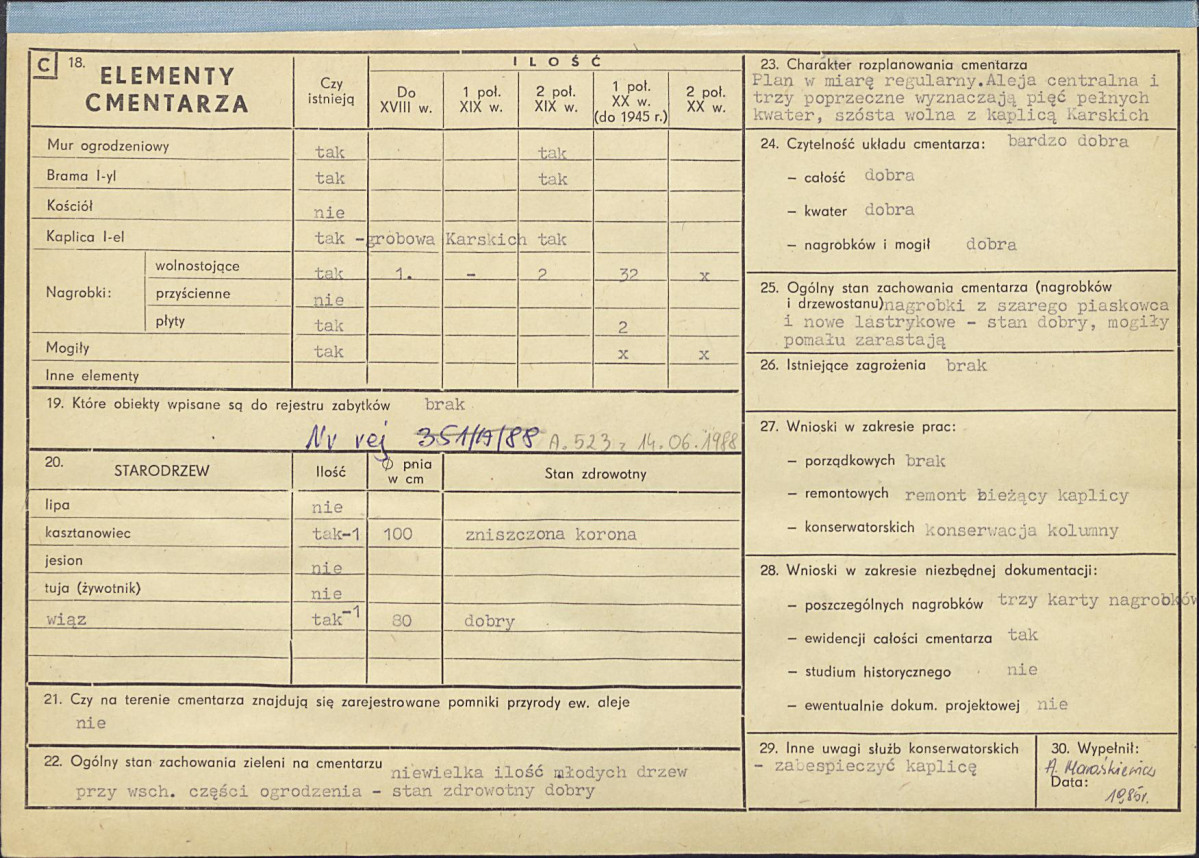 C 18. ELEMENTY CMENTARZA
Czy istnieją
ILOŚĆ
Do XVIII w.
1 poł. XIX w.
2 poł. XIX w.
1 poł. XX w. (do 1945 r.)
2 poł. XX w.
Mur ogrodzeniowy tak tak
Brama I-yl tak tak
Kościół nie
Kaplica I-el tak -grobowa Karskich tak
Nagrobki:
wolnostojące tak 1. - 2 32 x
przyścienne nie
płyty tak 2
Mogiły tak x x
Inne elementy
19. Które obiekty wpisane są do rejestru zabytków brak
Nr rej 351/A/88 A.523 z 14.06.1988
20. STARODRZEW Ilość Ø pnia w cm Stan zdrowotny
lipa nie
kasztanowiec tak-1 100 zniszczona korona
jesion nie
tuja (żywotnik) nie
wiąz tak-1 80 dobry
21. Czy na terenie cmentarza znajdują się zarejestrowane pomniki przyrody ew. aleje
nie
22. Ogólny stan zachowania zieleni na cmentarzu niewielka ilość młodych drzew
przy wsch. części ogrodzenia - stan zdrowotny dobry
23. Charakter rozplanowania cmentarza
Plan w miarę regularny.Aleja centralna i
trzy poprzeczne wyznaczają pięć pełnych
kwater, szósta wolna z kaplicą Karskich
24. Czytelność układu cmentarza: bardzo dobra
- całość dobra
- kwater dobra
- nagrobków i mogił dobra
25. Ogólny stan zachowania cmentarza (nagrobków
i drzewostanu)nagrobki z szarego piaskowca
i nowe lastrykowe - stan dobry, mogiły
pomału zarastają
26. Istniejące zagrożenia brak
27. Wnioski w zakresie prac:
- porządkowych brak
- remontowych remont bieżący kaplicy
- konserwatorskich konserwacja kolumny
28. Wnioski w zakresie niezbędnej dokumentacji:
- poszczególnych nagrobków trzy karty nagrobków
- ewidencji całości cmentarza tak
- studium historycznego nie
- ewentualnie dokum. projektowej nie
29. Inne uwagi służb konserwatorskich
- zabespieczyć kaplicę
30. Wypełnił:
A. Maraśkiewicz
Data:
1985r.